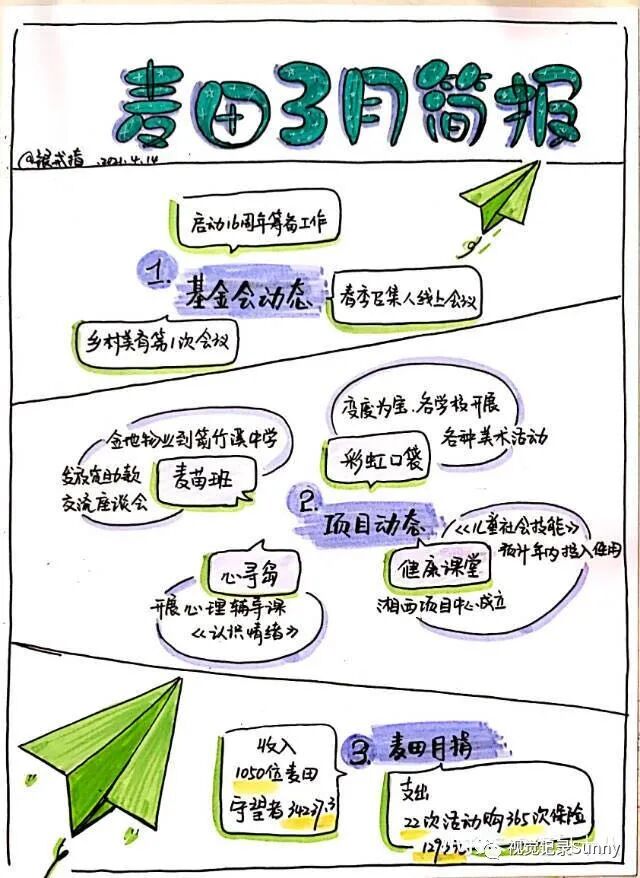 麦田3月简报
@银戒指 2021.4.14
启动16周年筹备工作
1.
基金会动态
春季召集人线上会议
乡村美育第1次会议
变废为宝、各学校开展
各种美术活动
彩虹口袋
金地物业到箭竹溪中学
发放定助款
交流座谈会
麦苗班
2.
项目动态
《儿童社会技能》
预计年内投入使用
健康课堂
湘西项目中心成立
心寻岛
开展心理辅导课
《认识情绪》
3.
麦田月捐
收入
1050位麦田
守望者34237.3
支出
22次活动购365次保险
视觉记录Sunny